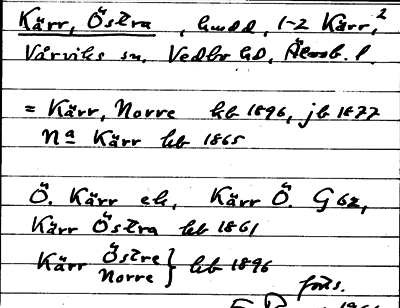 Kärr, Östra, hmdd, 1-2 Kärr,²
Vårviks sn, Vedbo hd, Älvsb. l.
= Kärr, Norre hb 1896, jb 1877
Na Kärr hb 1865
Ö. Kärr ek, Kärr Ö. G 62,
Kärr Östra hb 1861
Kärr Östre
Norre } hb 1896
forts.